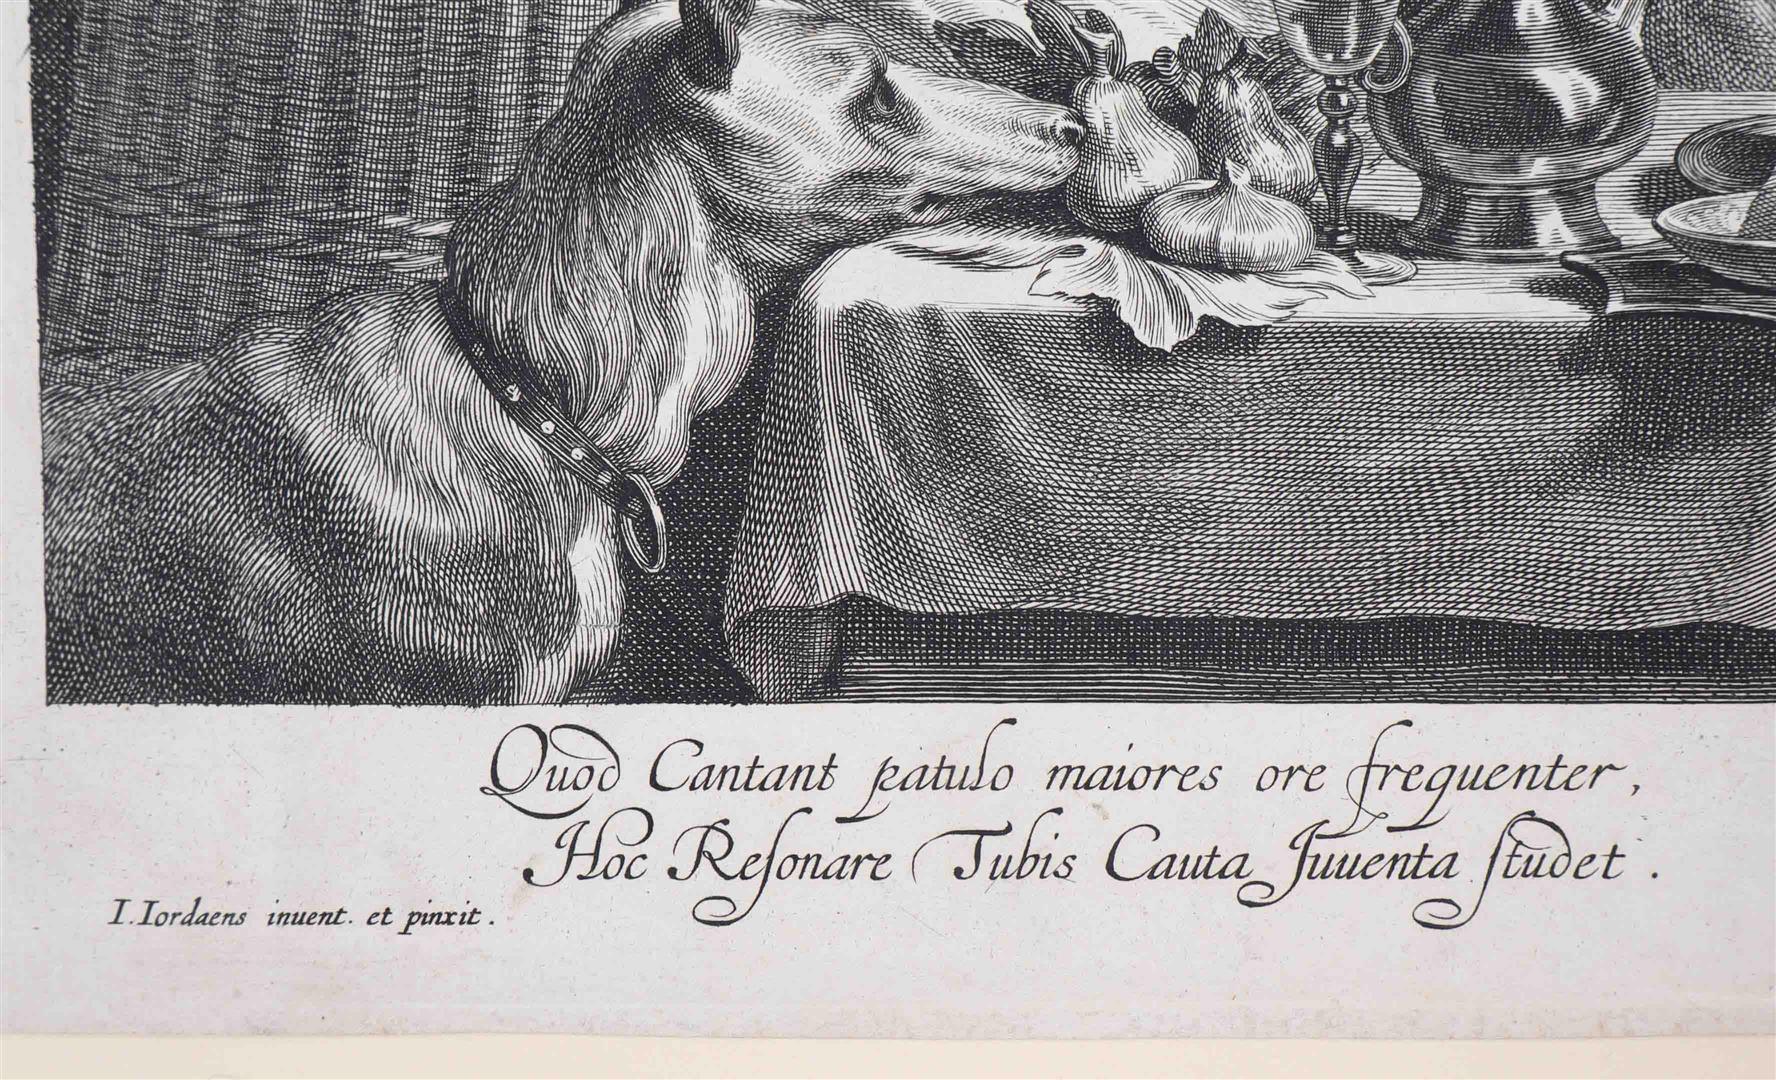 Quod Cantant patulo maiores ore frequenter,
Hoc Reſonare Tubis Cauta Juuenta ſtudet.
I. Iordaens inuent. et pinxit.